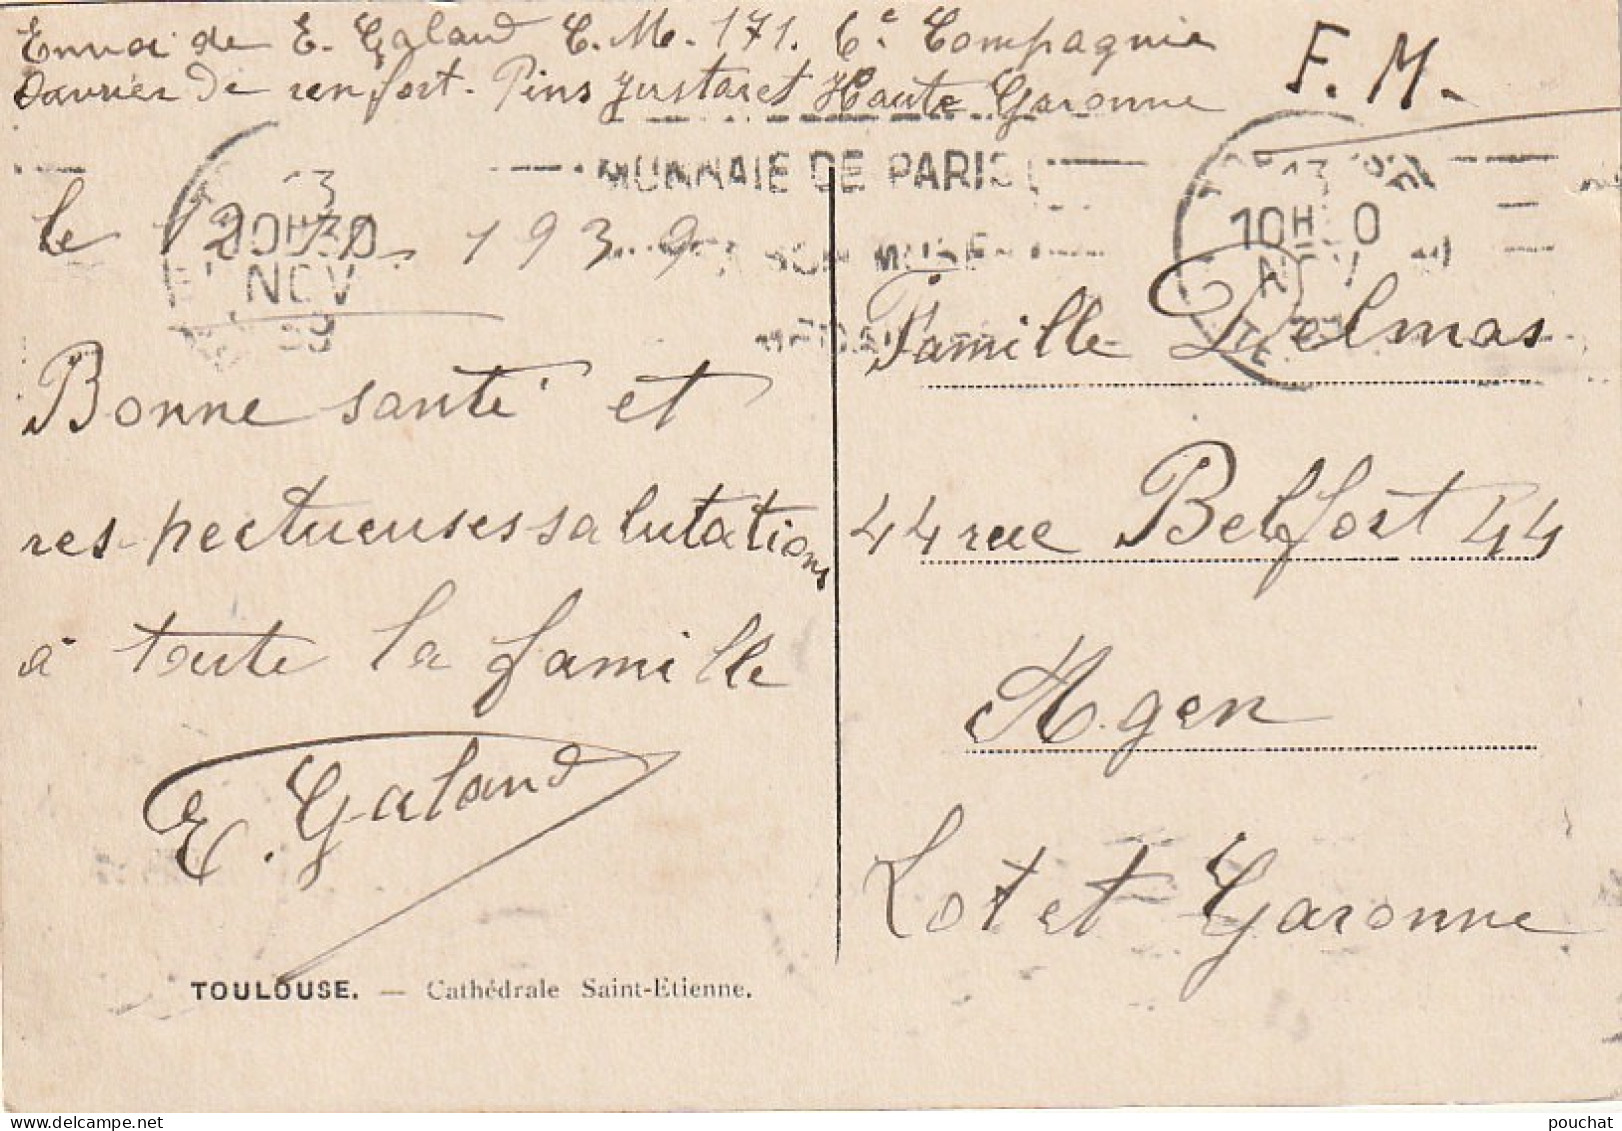 Envoi de E. Galaud C.M. 171. 6e Compagnie
Ouvrier de renfort. Pins Justaret Haute Garonne
F.M.
MONNAIE DE PARIS
13
10H
NOV
39
le 12 1939
Bonne santé et
respectueuses salutations
à toute la famille
E. Galaud
TOULOUSE. — Cathédrale Saint-Etienne.
Famille Delmas
44 rue Belfort 44
Agen
Lot et Garonne
pouchat